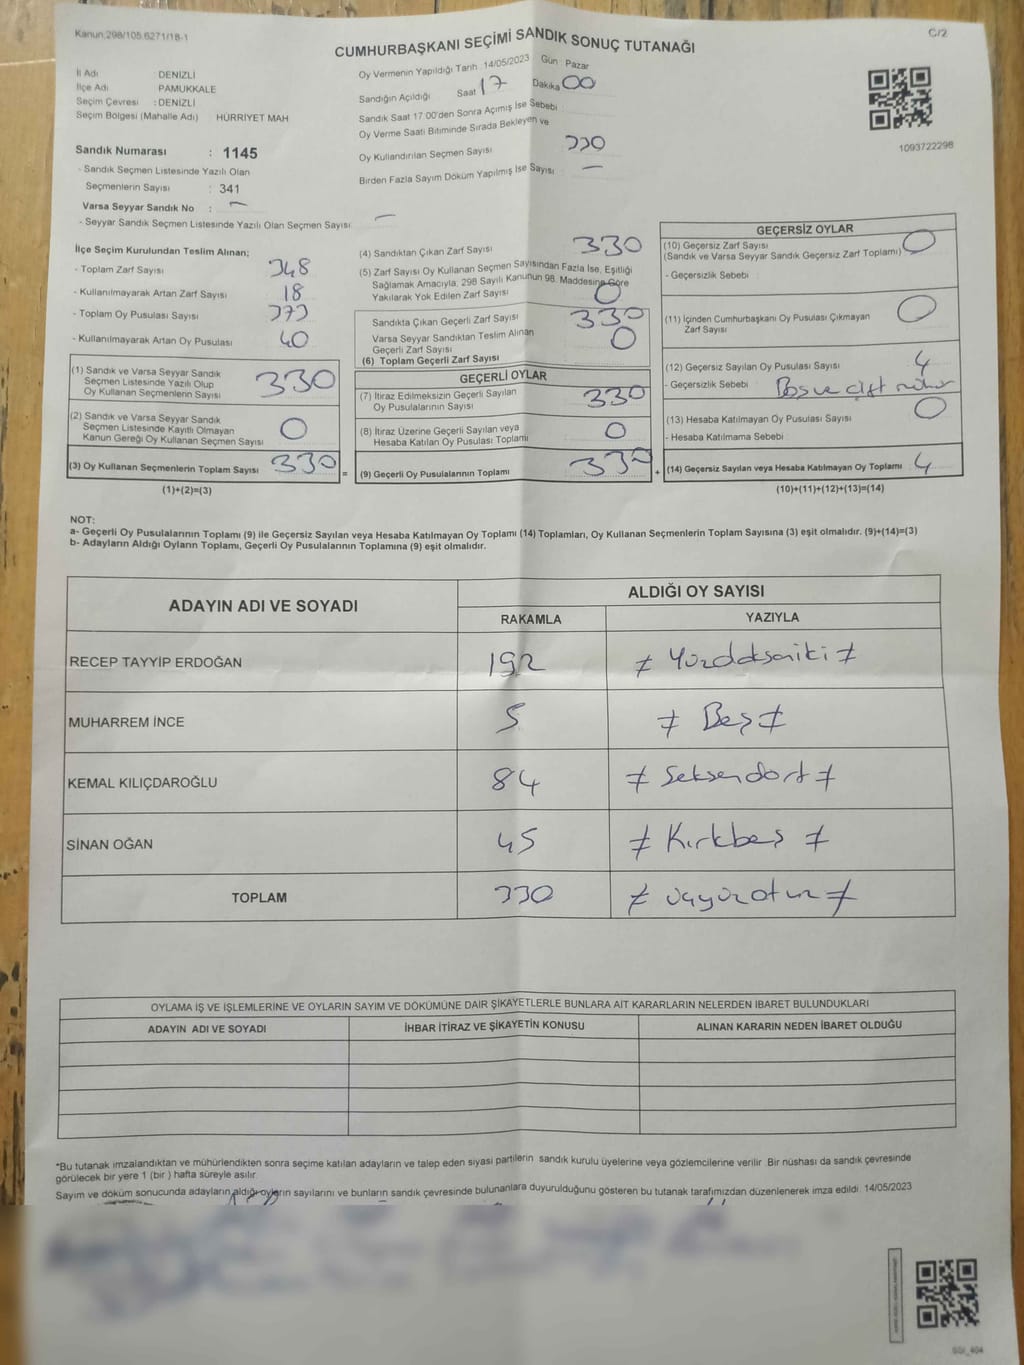 Kanun.298/105.6271/18-1
C/2
CUMHURBAŞKANI SEÇİMİ SANDIK SONUÇ TUTANAĞI
İl Adı DENİZLİ
İlçe Adı PAMUKKALE
Seçim Çevresi : DENİZLİ
Seçim Bölgesi (Mahalle Adı) HÜRRİYET MAH
Sandık Numarası : 1145
- Sandık Seçmen Listesinde Yazılı Olan
Seçmenlerin Sayısı : 341
Varsa Seyyar Sandık No : -
- Seyyar Sandık Seçmen Listesinde Yazılı Olan Seçmen Sayısı -
Oy Vermenin Yapıldığı Tarih 14/05/2023 Gün Pazar
Sandığın Açıldığı Saat 17 Dakika 00
Sandık Saat 17 00'den Sonra Açımış İse Sebebi
Oy Verme Saati Bitiminde Sırada Bekleyen ve
Oy Kullandırılan Seçmen Sayısı 330
Birden Fazla Sayım Döküm Yapılmış İse Sayısı -
1093722298
İlçe Seçim Kurulundan Teslim Alınan;
- Toplam Zarf Sayısı 348
- Kullanılmayarak Artan Zarf Sayısı 18
- Toplam Oy Pusulası Sayısı
- Kullanılmayarak Artan Oy Pusulası 40
(1) Sandık ve Varsa Seyyar Sandık
Seçmen Listesinde Yazılı Olup
Oy Kullanan Seçmenlerin Sayısı 330
(2) Sandık ve Varsa Seyyar Sandık
Seçmen Listesinde Kayıtlı Olmayan
Kanun Gereği Oy Kullanan Seçmen Sayısı 0
(3) Oy Kullanan Seçmenlerin Toplam Sayısı 330 =
(1)+(2)=(3)
(4) Sandıktan Çıkan Zarf Sayısı 330
(5) Zarf Sayısı Oy Kullanan Seçmen Sayısından Fazla İse, Eşitliği
Sağlamak Amacıyla, 298 Sayılı Kanunun 98. Maddesine Göre
Yakılarak Yok Edilen Zarf Sayısı 0
Sandıkta Çıkan Geçerli Zarf Sayısı 330
Varsa Seyyar Sandıktan Teslim Alınan
Geçerli Zarf Sayısı 0
(6) Toplam Geçerli Zarf Sayısı
GEÇERLİ OYLAR
(7) İtiraz Edilmeksizin Geçerli Sayılan
Oy Pusulalarının Sayısı 330
(8) İtiraz Üzerine Geçerli Sayılan veya
Hesaba Katılan Oy Pusulası Toplamı 0
(9) Geçerli Oy Pusulalarının Toplamı 330 +
GEÇERSİZ OYLAR
(10) Geçersiz Zarf Sayısı
(Sandık ve Varsa Seyyar Sandık Geçersiz Zarf Toplamı) 0
- Geçersizlik Sebebi
(11) İçinden Cumhurbaşkanı Oy Pusulası Çıkmayan
Zarf Sayısı 0
(12) Geçersiz Sayılan Oy Pusulası Sayısı 4
- Geçersizlik Sebebi Boş ve çift mühür
(13) Hesaba Katılmayan Oy Pusulası Sayısı 0
- Hesaba Katılmama Sebebi
(14) Geçersiz Sayılan veya Hesaba Katılmayan Oy Toplamı 4
(10)+(11)+(12)+(13)=(14)
NOT:
a- Geçerli Oy Pusulalarının Toplamı (9) ile Geçersiz Sayılan veya Hesaba Katılmayan Oy Toplamı (14) Toplamları, Oy Kullanan Seçmenlerin Toplam Sayısına (3) eşit olmalıdır. (9)+(14)=(3)
b- Adayların Aldığı Oyların Toplamı, Geçerli Oy Pusulalarının Toplamına (9) eşit olmalıdır.
ADAYIN ADI VE SOYADI
ALDIĞI OY SAYISI
RAKAMLA YAZIYLA
RECEP TAYYİP ERDOĞAN 192 ≠ Yüzdoksaniki ≠
MUHARREM İNCE 5 ≠ Beş ≠
KEMAL KILIÇDAROĞLU 84 ≠ Seksendört ≠
SİNAN OĞAN 45 ≠ Kırkbeş ≠
TOPLAM 330 ≠ üçyüzotuz ≠
OYLAMA İŞ VE İŞLEMLERİNE VE OYLARIN SAYIM VE DÖKÜMÜNE DAİR ŞİKAYETLERLE BUNLARA AİT KARARLARIN NELERDEN İBARET BULUNDUKLARI
ADAYIN ADI VE SOYADI İHBAR İTİRAZ VE ŞİKAYETİN KONUSU ALINAN KARARIN NEDEN İBARET OLDUĞU
*Bu tutanak imzalandıktan ve mühürlendikten sonra seçime katılan adayların ve talep eden siyasi partilerin sandık kurulu üyelerine veya gözlemcilerine verilir Bir nüshası da sandık çevresinde
görülecek bir yere 1 (bir) hafta süreyle asılır
Sayım ve döküm sonucunda adayların aldığı oyların sayılarını ve bunların sandık çevresinde bulunanlara duyurulduğunu gösteren bu tutanak tarafımızdan düzenlenerek imza edildi. 14/05/2023